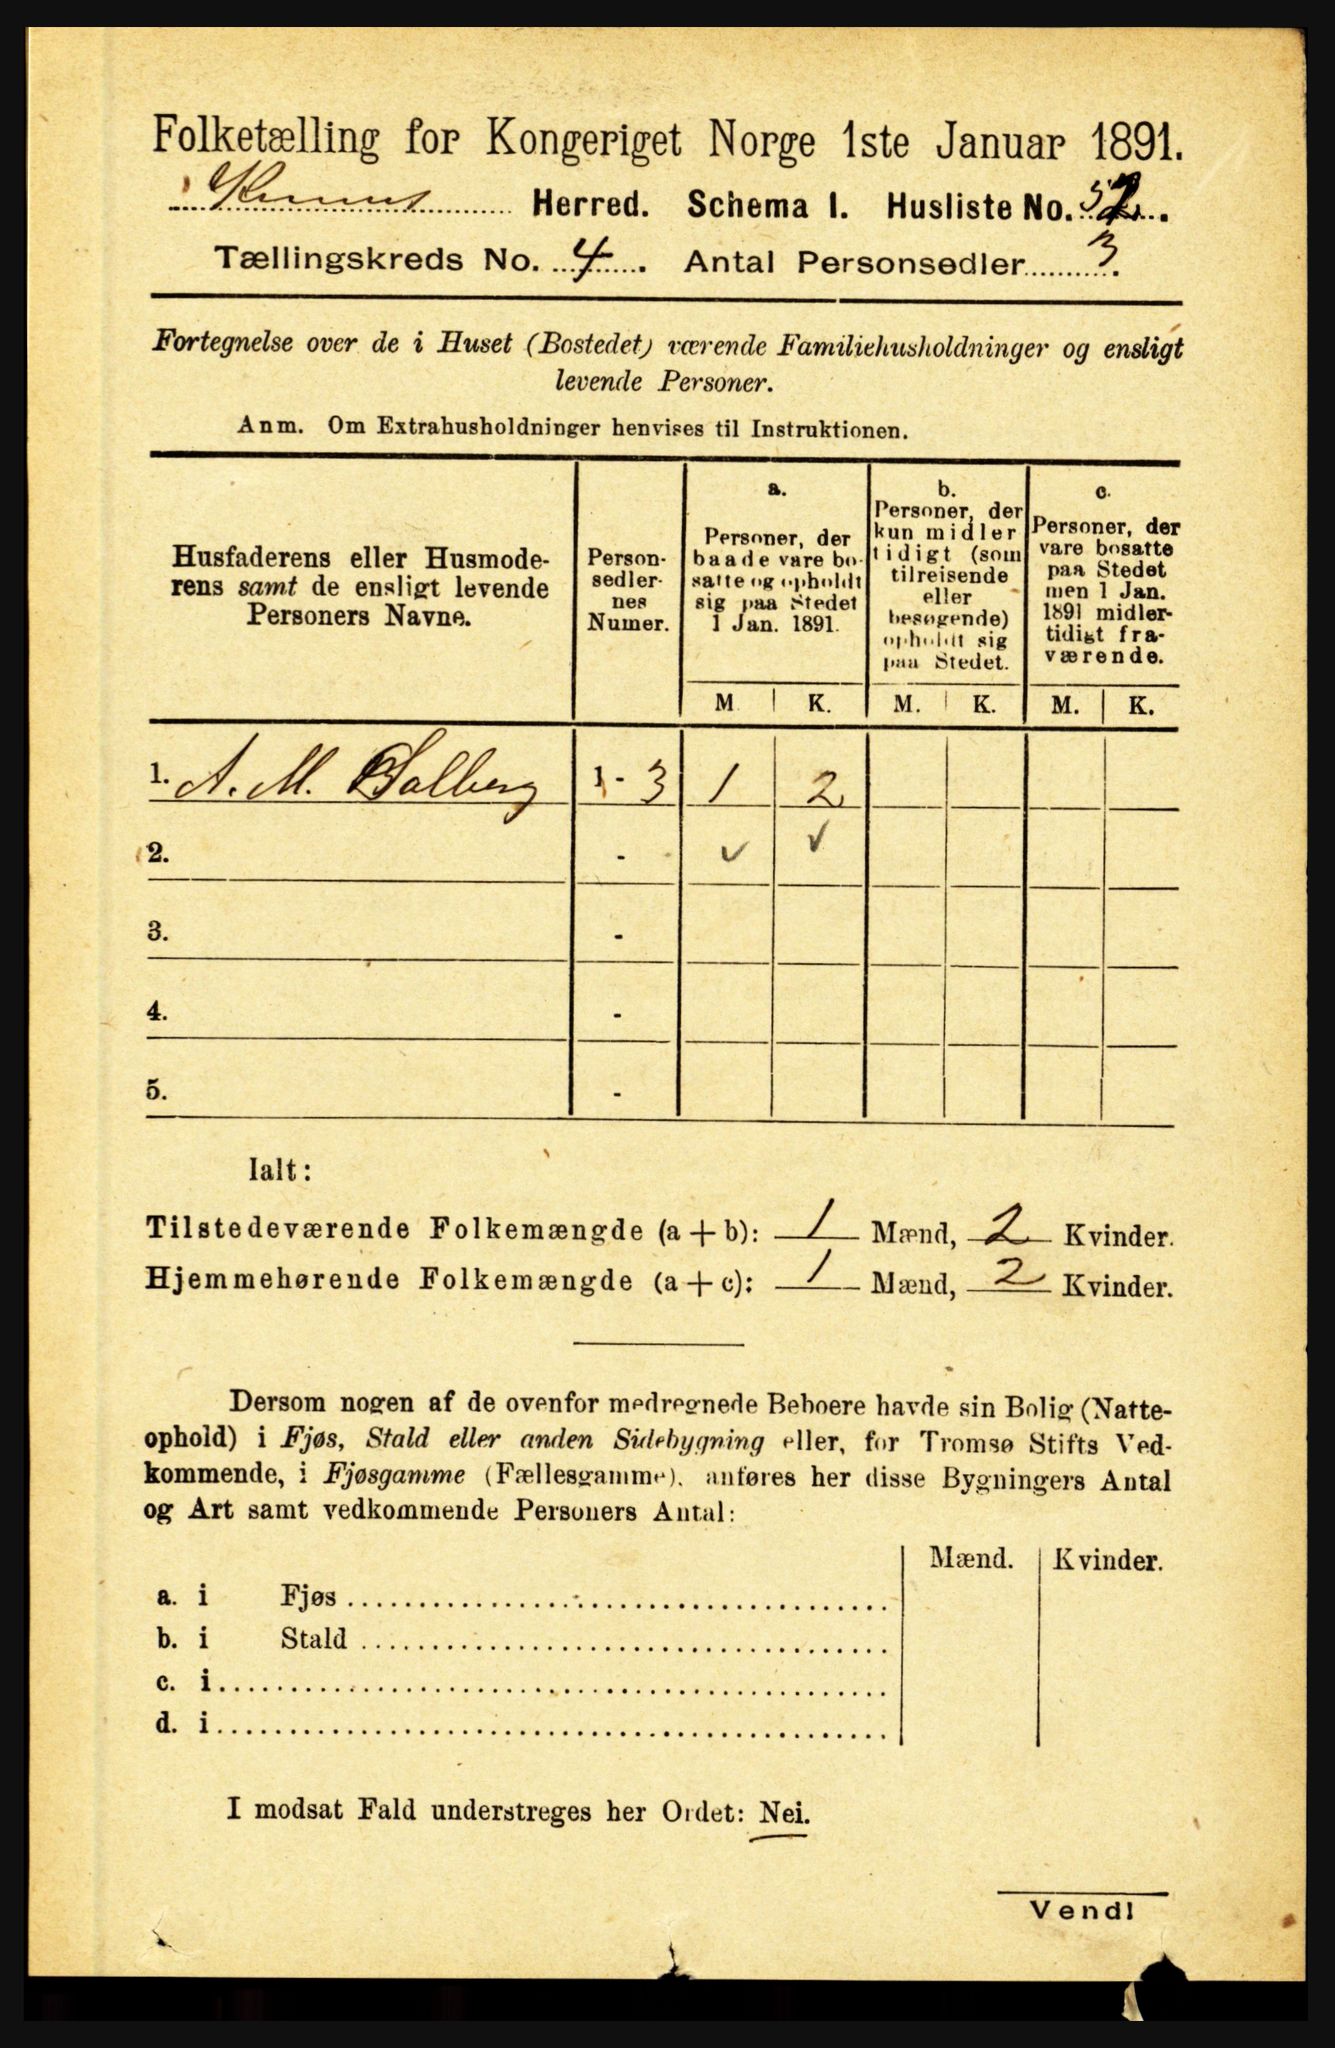 Folketælling for Kongeriget Norge 1ste Januar 1891.
Herred. Schema I. Husliste No. 52.
Tællingskreds No. 4. Antal Personsedler 3.
Fortegnelse over de i Huset (Bostedet) værende Familiehusholdninger og ensligt
levende Personer.
Anm. Om Extrahusholdninger henvises til Instruktionen.
Husfaderens eller Husmode-
rens samt de ensligt levende
Personers Navne.
Person-
sedler-
nes
Numer.
a.
Personer, der
baade vare bo-
satte og opholdt
sig paa Stedet
1 Jan. 1891.
b.
Personer, der
kun midler
tidigt (som
tilreisende
eller
besøgende)
opholdt sig
paa Stedet.
c.
Personer, der
vare bosatte
paa Stedet
men 1 Jan.
1891 midler-
tidigt fra-
værende.
M. K. M. K. M. K.
1. A. M. Solberg 1 - 3 1 2
2. - ✓ ✓
3. -
4. -
5. -
Ialt:
Tilstedeværende Folkemængde (a + b): 1 Mænd, 2 Kvinder.
Hjemmehørende Folkemængde (a + c): 1 Mænd, 2 Kvinder.
Dersom nogen af de ovenfor medregnede Beboere havde sin Bolig (Natte-
ophold) i Fjøs, Stald eller anden Sidebygning eller, for Tromsø Stifts Ved-
kommende, i Fjøsgamme (Fællesgamme), anføres her disse Bygningers Antal
og Art samt vedkommende Personers Antal:
Mænd. Kvinder.
a. i Fjøs
b. i Stald
c. i
d. i
I modsat Fald understreges her Ordet: Nei.
Vend!